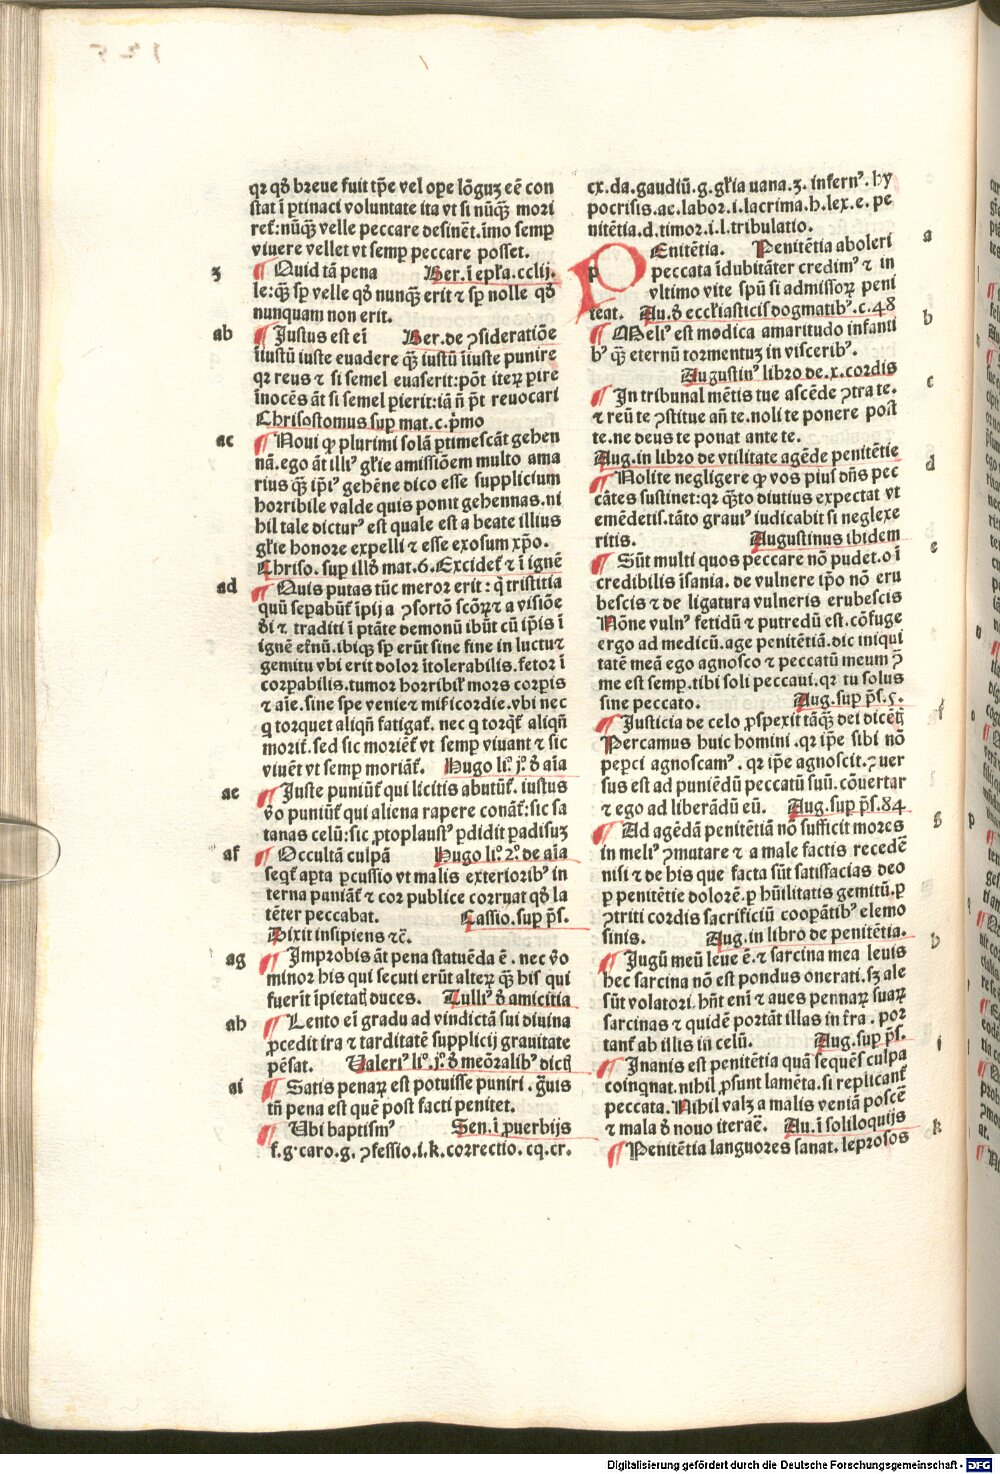 qꝛ qð bꝛeue fuit tꝑe vel oꝑe lõguʒ eẽ con
ſtat ĩ ꝑtinaci voluntate ita vt ſi nũqꝫ moꝛi
ret᷑:nũqꝫ velle peccare deſinẽt.imo ſemꝑ
viuere vellet vt ſemꝑ peccare poſſet.
ʒ ¶ Quid tã pena Ber.ĩ epl̃a.cclij.
le:qꝫ ſꝑ velle qð nunqꝫ erit ⁊ ſꝑ nolle qð
nunquam non erit.
ab ¶ Juſtus est eĩ Ber.de ꝯſideratiõe
ĩiuſtũ iuſte euadere qꝫ iuſtũ ĩiuſte punire
qꝛ reus ⁊ ſi ſemel euaſerit:põt iteꝝ ꝑire
ĩnocẽs ãt ſi ſemel ꝑierit:iã ñ p̃t reuocari
Chriſoſtomus ſuꝑ mat.c.p̃mo
ac ¶ Noui ꝙ plurimi ſolã ꝑtimeſcãt gehen
nã.ego ãt illiꝰ gl̃ie amiſſiõem multo ama
rius qꝫ ip̃iꝰ gehẽne dico eſſe ſupplicium
hoꝛribile valde quis ponit gehennas.ni
hil tale dicturꝰ eſt quale eſt a beate illius
gl̃ie honoꝛe expelli ⁊ eſſe exoſum xp̃o.
Chriſo.ſuꝑ illð mat.6.Excidet᷑ ⁊ ĩ ignẽ
ad ¶ Quis putas tũc meroꝛ erit:q̃ triſtitia
quũ ſeꝑabũt᷑ ĩpij a ꝯſoꝛtõ ſcõꝝ ⁊ a viſiõe
ði ⁊ traditi ĩ ptãte demonũ ibũt cũ ip̃is ĩ
ignẽ et᷑nũ.ibiqꝫ ſꝑ erũt ſine fine in luctu ⁊
gemitu vbi erit doloꝛ ĩtolerabilis.fetoꝛ ĩ
coꝛꝑabilis.tumoꝛ hoꝛribil̃ moꝛs coꝛꝑis
⁊ aĩe.ſine ſpe venie ⁊ miẜicoꝛdie.vbi nec
q toꝛquet aliqñ fatigat᷑. nec q toꝛqt᷑ aliqñ
moꝛit᷑.ſed ſic moꝛiẽt᷑ vt ſemꝑ viuant ⁊ ſic
viuẽt vt ſemꝑ moꝛiãt᷑. Hugo li.ͦ j.ͦ ð aĩa
ae ¶ Juſte puniũt᷑ qui licitis abutũt᷑. iuſtus
v̾o puniũt᷑ qui aliena rapere conãt᷑:ſic ſa
tanas celũ:ſic ꝓtoplauſtꝰ ꝑdidit ꝑadiſuʒ
af ¶ Occultã culpã Hugo li.ͦ 2.ͦ de aĩa
ſeqt᷑ aꝑta ꝑcuſſio vt malis exterioꝛibꝰ in
terna puniãt᷑ ⁊ coꝛ publice coꝛruat qð la
tẽter peccabat. Caſſio.ſuꝑ p̃ſ.
Dixit inſipiens ⁊c̃.
ag ¶ Jmprobis ãt pena ſtatuẽda ẽ. nec v̾o
minoꝛ his qui ſecuti erũt alteꝝ qꝫ his qui
fuerit ĩpietatꝭ duces. Tulliꝰ ð amicitia
ah ¶ Lento eĩ gradu ad vindictã ſui diuina
ꝓcedit ira ⁊ tarditatẽ ſupplicij grauitate
pẽſat. Valeriꝰ li.ͦ j.ͦ ð meõꝛalibꝰ dictꝭ
ai ¶ Satis penaꝝ eſt potuiſſe puniri. g̃uis
tñ pena eſt quẽ poſt facti penitet.
¶ Vbi baptiſmꝰ Sen.ĩ ꝓuerbijs
f.g.caro.g. ꝯfeſſio.i.k.coꝛrectio.cq.cr.
cx.da.gaudiũ.g.gl̃ia uana.ʒ. infernꝰ.hy
pocriſis.ae.laboꝛ.i.lacrima.h.lex.e. pe
nitẽtia.d.timoꝛ.i.l.tribulatio.
a PEnitẽtia. Penitẽtia aboleri
peccata ĩdubitãter credimꝰ ⁊ in
vltimo vite ſpũ ſi admiſſoꝝ peni
teat. Au.ð eccl̃iaſticis dogmatibꝰ.c.48
b ¶ Meliꝰ eſt modica amaritudo infanti
bꝰ qꝫ eternũ toꝛmentuʒ in viſceribꝰ.
Auguſtinꝰ libro de.x.coꝛdis
c ¶ Jn tribunal mẽtis tue aſcẽde ꝯtra te.
⁊ reũ te ꝯſtitue añ te.noli te ponere poſt
te.ne deus te ponat ante te.
Aug.in libro de vtilitate agẽde penitẽtie
d ¶ Nolite negligere ꝙ vos pius dñs pec
cãtes ſuſtinet:qꝛ qꝫto diutius expectat vt
emẽdetis.tãto grauiꝰ iudicabit ſi neglexe
ritis. Auguſtinus ibidem
e ¶ Sũt multi quos peccare nõ pudet.o ĩ
credibilis ĩſania. de vulnere ip̃o nõ eru
beſcis ⁊ de ligatura vulneris erubeſcis
Nõne vulnꝰ fetidũ ⁊ putredũ eſt.cõfuge
ergo ad medicũ.age penitẽtiã.dic iniqui
tatẽ meã ego agnoſco ⁊ peccatũ meum ꝯ̃
me eſt ſemꝑ.tibi ſoli peccaui.qꝛ tu ſolus
ſine peccato. Aug.ſuꝑ p̃ſ.5.
f ¶ Juſticia de celo ꝓſpexit tãqꝫ dei dicẽtꝭ
Percamus huic homini.qꝛ ip̃e ſibi nõ
peꝑci agnoſcamꝰ. qꝛ ip̃e agnoſcit.ꝯuer
ſus eſt ad puniẽdũ peccatũ ſuũ.cõuertar
⁊ ego ad liberãdũ eũ. Aug.ſuꝑ p̃ſ.84
g ¶ Ad agẽdã penitẽtiã nõ ſufficit moꝛes
in meliꝰ ꝯmutare ⁊ a male factis recedẽ
niſi ⁊ de his que facta ſũt ſatiſfacias deo
ꝑ penitẽtie doloꝛẽ.ꝑ hũilitatis gemitũ.ꝑ
ꝯtriti coꝛdis ſacrificiũ cooꝑãtibꝰ elemo
ſinis. Aug.in libro de penitẽtia.
h ¶ Jugũ meũ leue ẽ.⁊ ſarcina mea leuis
hec ſarcina nõ eſt pondus onerati.ſʒ ale
ſũt volatoꝛi.hñt enĩ ⁊ aues pennaꝝ ſuaꝝ
ſarcinas ⁊ quidẽ poꝛtãt illas in t̃ra. poꝛ
tant᷑ ab illis in celũ. Aug.ſuꝑ p̃ſ.
i ¶ Jnanis eſt penitẽtia quã ſequẽs culpa
coinqnat.nihil ꝓſunt lamẽta.ſi replicant᷑
peccata.Nihil valʒ a malis veniã poſcẽ
⁊ mala ð nouo iteraẽ. Au.ĩ ſoliloquijs
k ¶ Penitẽtia languoꝛes ſanat. lepꝛoſos
Digitalisierung gefördert durch die Deutsche Forschungsgemeinschaft - DFG